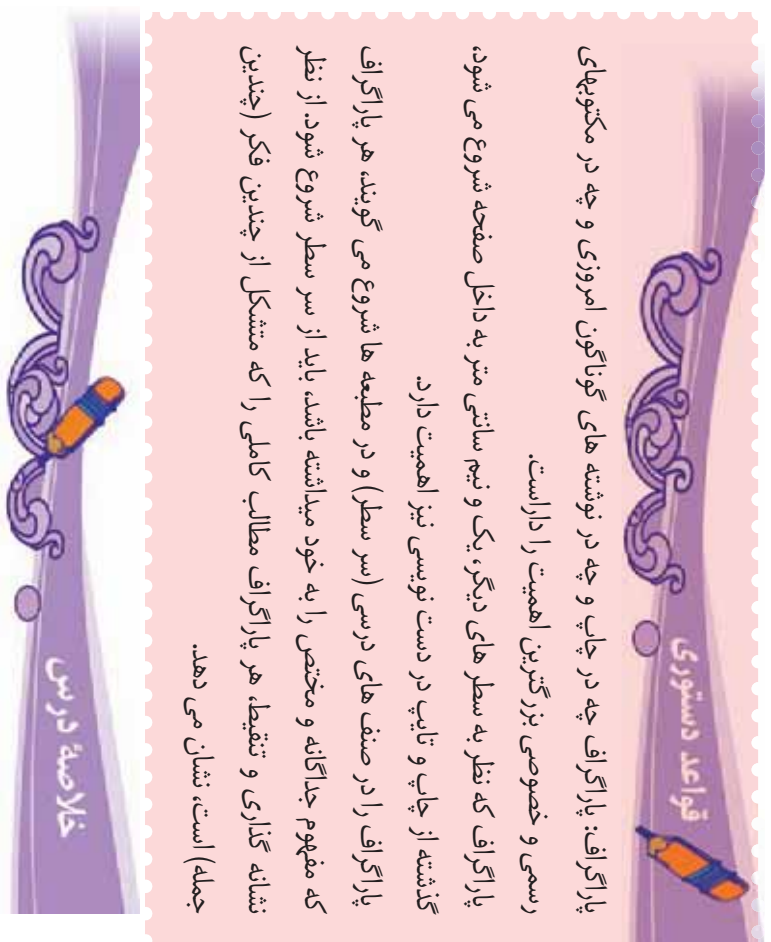 قواعد دستوری
پاراگراف: پاراگراف چه در چاپ و چه در نوشته های گوناگون امروزی و چه در مکتوبهای
رسمی و خصوصی بزرگترین اهمیت را داراست.
پاراگراف که نظر به سطر های دیگر، یک و نیم سانتی متر به داخل صفحه شروع می شود،
گذشته از چاپ و تایپ در دست نویسی نیز اهمیت دارد.
پاراگراف را در صنف های درسی (سر سطر) و در مطبعه ها شروع می گویند، هر پاراگراف
که مفهوم جداگانه و مختص را به خود میداشته باشد، باید از سر سطر شروع شود. از نظر
نشانه گذاری و تنقیط، هر پاراگراف مطالب کاملی را که متشکل از چندین فکر (چندین
جمله) است، نشان می دهد.
خلاصهٔ درس